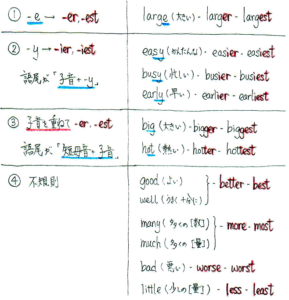 ① -e → -er, -est
large (大きい) - larger - largest
② -y → -ier, -iest
語尾が「子音+-y」
easy (かんたんな) - easier - easiest
busy (忙しい) - busier - busiest
early (早い) - earlier - earliest
③ 子音を重ねて -er, -est
語尾が「短母音+子音」
big (大きい) - bigger - biggest
hot (熱い) - hotter - hottest
④ 不規則
good (よい)
well (うまく, 十分に)
} - better - best
many (多くの[数])
much (多くの[量])
} - more - most
bad (悪い) - worse - worst
little (少しの[量]) - less - least